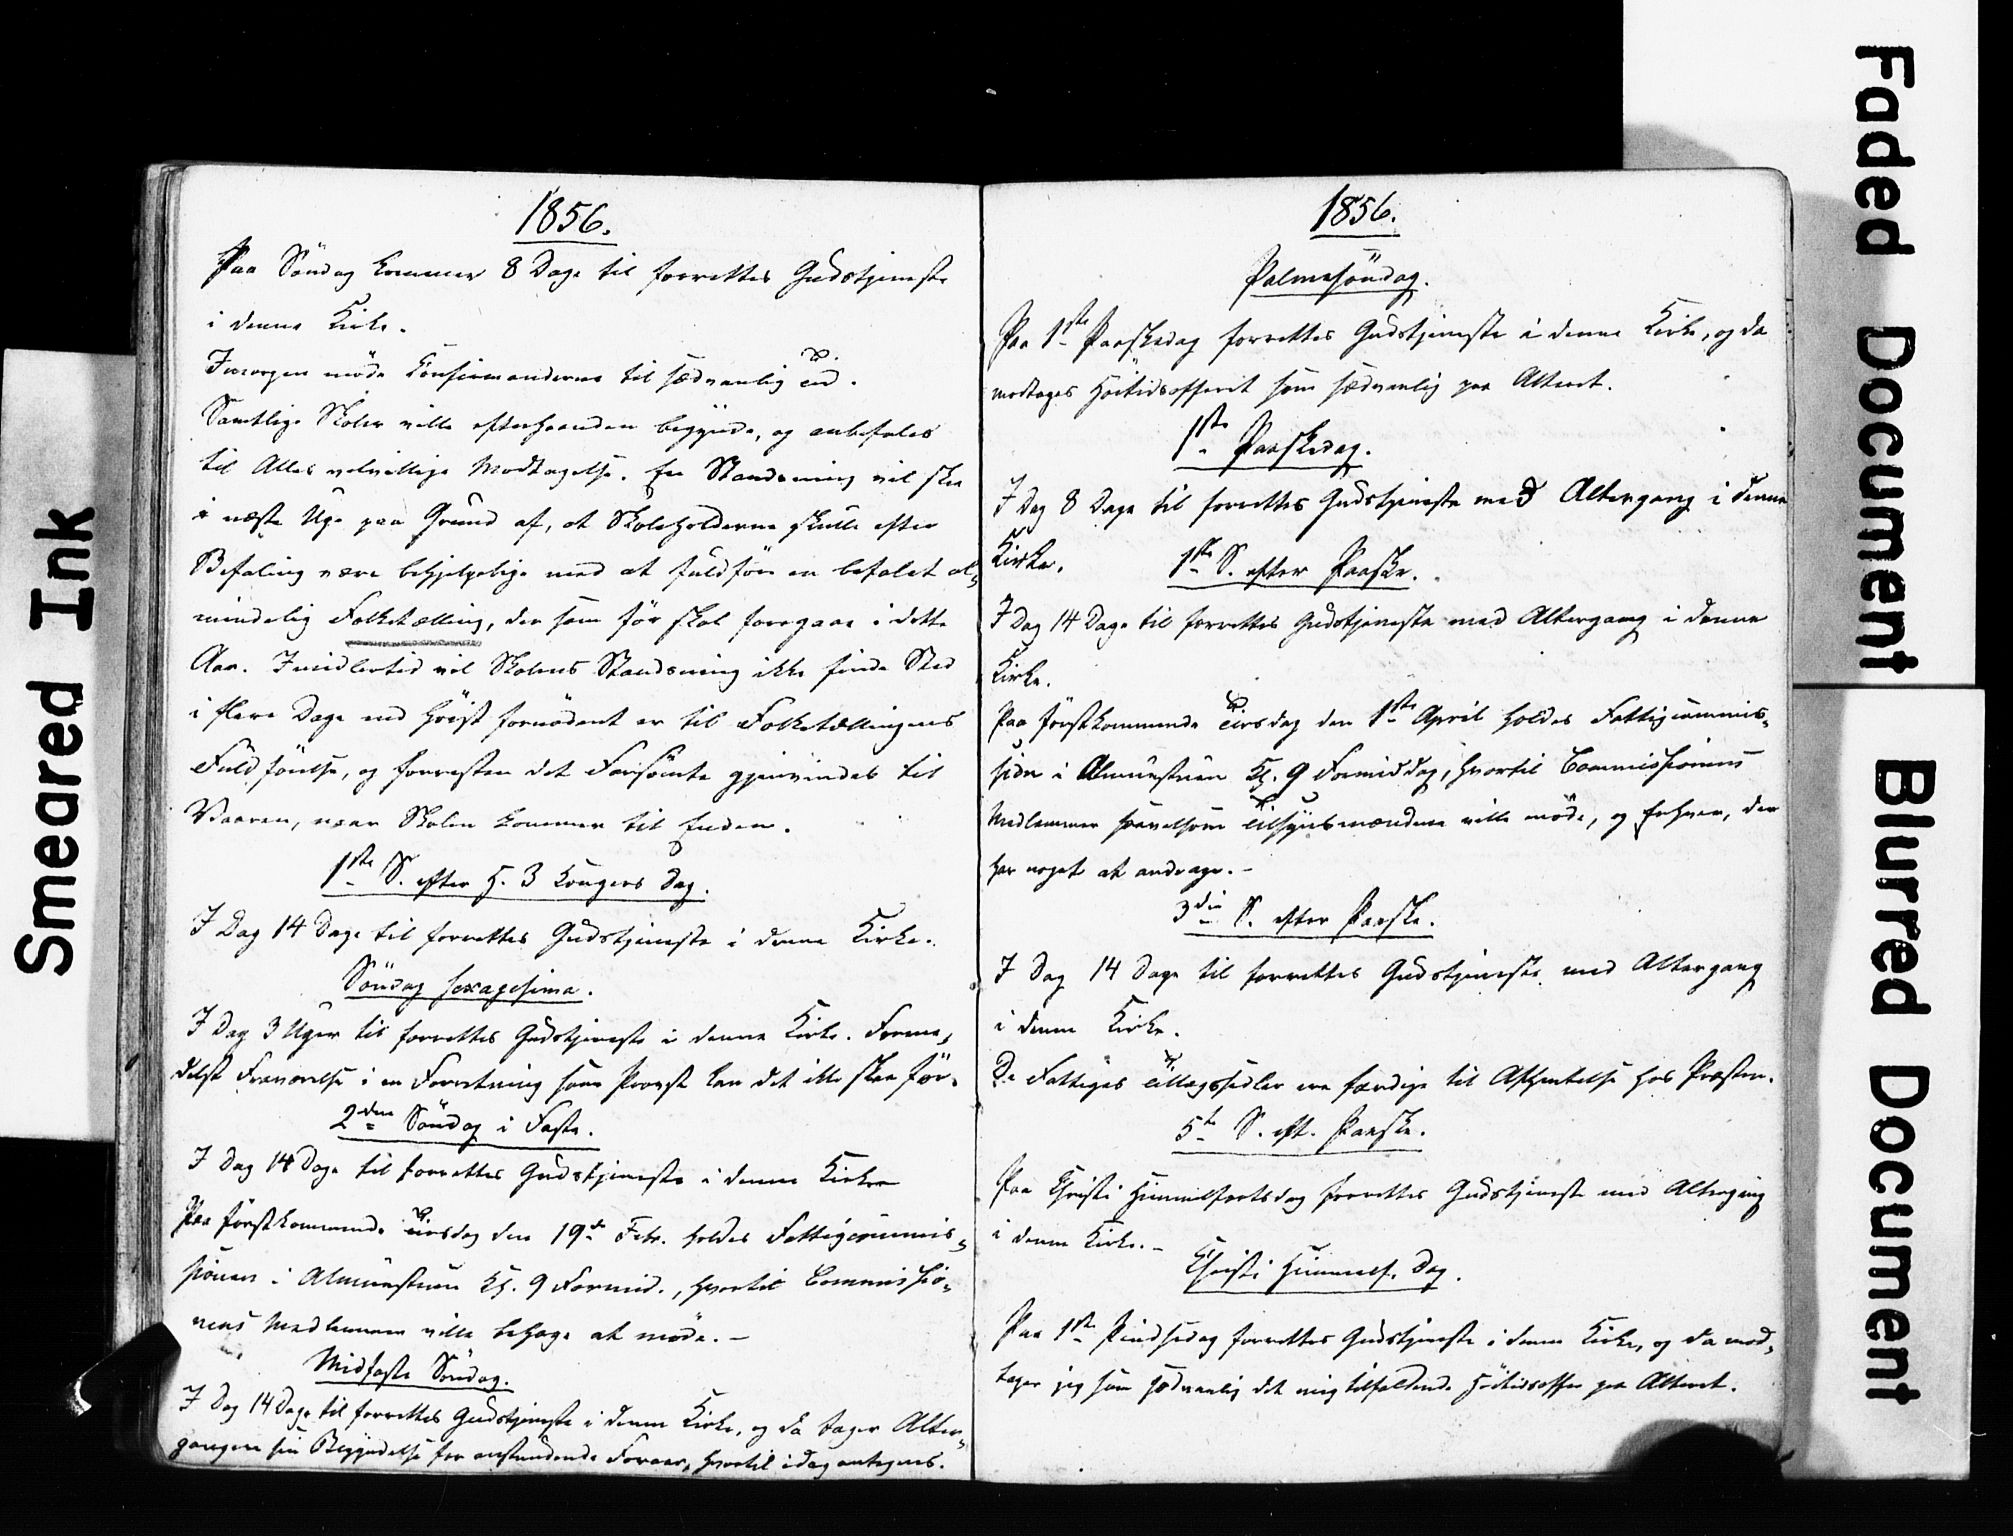 1856.
Paa Söndag kommer 8 Dage til forrettes Gudstjeneste
i denne Kirke.
Imorgen möde Confirmanderne til sædvanlig Tid.
Samtlige Skoler ville efterhaanden begynde, og anbefales
til Alles velvillige Modtagelse. En Standsning vil skee
i næste Uge paa Grund af, at Skoleholderne skulle efter
Befaling være behjelpelige med at fuldföre en befalet al-
mindelig Folketælling, der som för skal foregaae i dette
Aar. Imidlertid vil Skolens Standsning ikke finde Sted
i flere Dage end höist fornödent er til Folketællingens
Fuldförelse, og forresten det Forsömte gjenvindes til
Vaaren, naar Skolen kommer til Enden.
1ste S. efter H. 3 Kongers Dag.
I Dag 14 Dage til forrettes Gudstjeneste i denne Kirke.
Söndag sexagesima.
I Dag 3 Uger til forrettes Gudstjeneste i denne Kirke. Forme-
delst Fraværelse i en Forretning som Provst kan det ikke skee för.
2den Söndag i Faste.
I Dag 14 Dage til forrettes Gudstjeneste i denne Kirke
Paa förstkommende Tirsdag den 19de Febr. holdes Fattigcommis-
sionen i Almuestuen Kl. 9 Formid., hvortil Commissio-
nens Medlemmer ville behage at möde. -
Midfaste Söndag.
I Dag 14 Dage til forrettes Gudstjeneste i denne Kirke, og da tager Alter-
gangen sin Begyndelse for anstundende Foraar, hvortil idag antegnes.
1856.
Palmesöndag.
Paa 1ste Paaskedag forrettes Gudstjeneste i denne Kirke, og da
modtages Höitidsofferet som sædvanlig paa Alteret.
1ste Paaskedag.
I Dag 8 Dage til forrettes Gudstjeneste med Altergang i denne
Kirke.
1ste S. efter Paaske.
I Dag 14 Dage til forrettes Gudstjeneste med Altergang i denne
Kirke.
Paa förstkommende Tirsdag den 1ste April holdes Fattigcommis-
sion i Almuestuen Kl. 9 Formiddag, hvortil Commissionens
Medlemmer saavelsom Tilsynsmændene ville möde, og Enhver, der
har noget at andrage. -
3die S. efter Paaske.
I Dag 14 Dage til forrettes Gudstjeneste med Altergang
i denne Kirke.
De Fattiges Tillægssedler ere færdige til Afhentelse hos Præsten.
5te S. eft. Paaske.
Paa Christi Himmelfartsdag forrettes Gudstjeneste med Altergang
i denne Kirke. -
Christi Himmelf. Dag.
Paa 1ste Pindsedag forrettes Gudstjeneste i denne Kirke, og da mod-
tager jeg som sædvanlig det mig tilfaldende Höitidsoffer paa Alteret.
Smeared Ink
Faded Document
Blurred Document